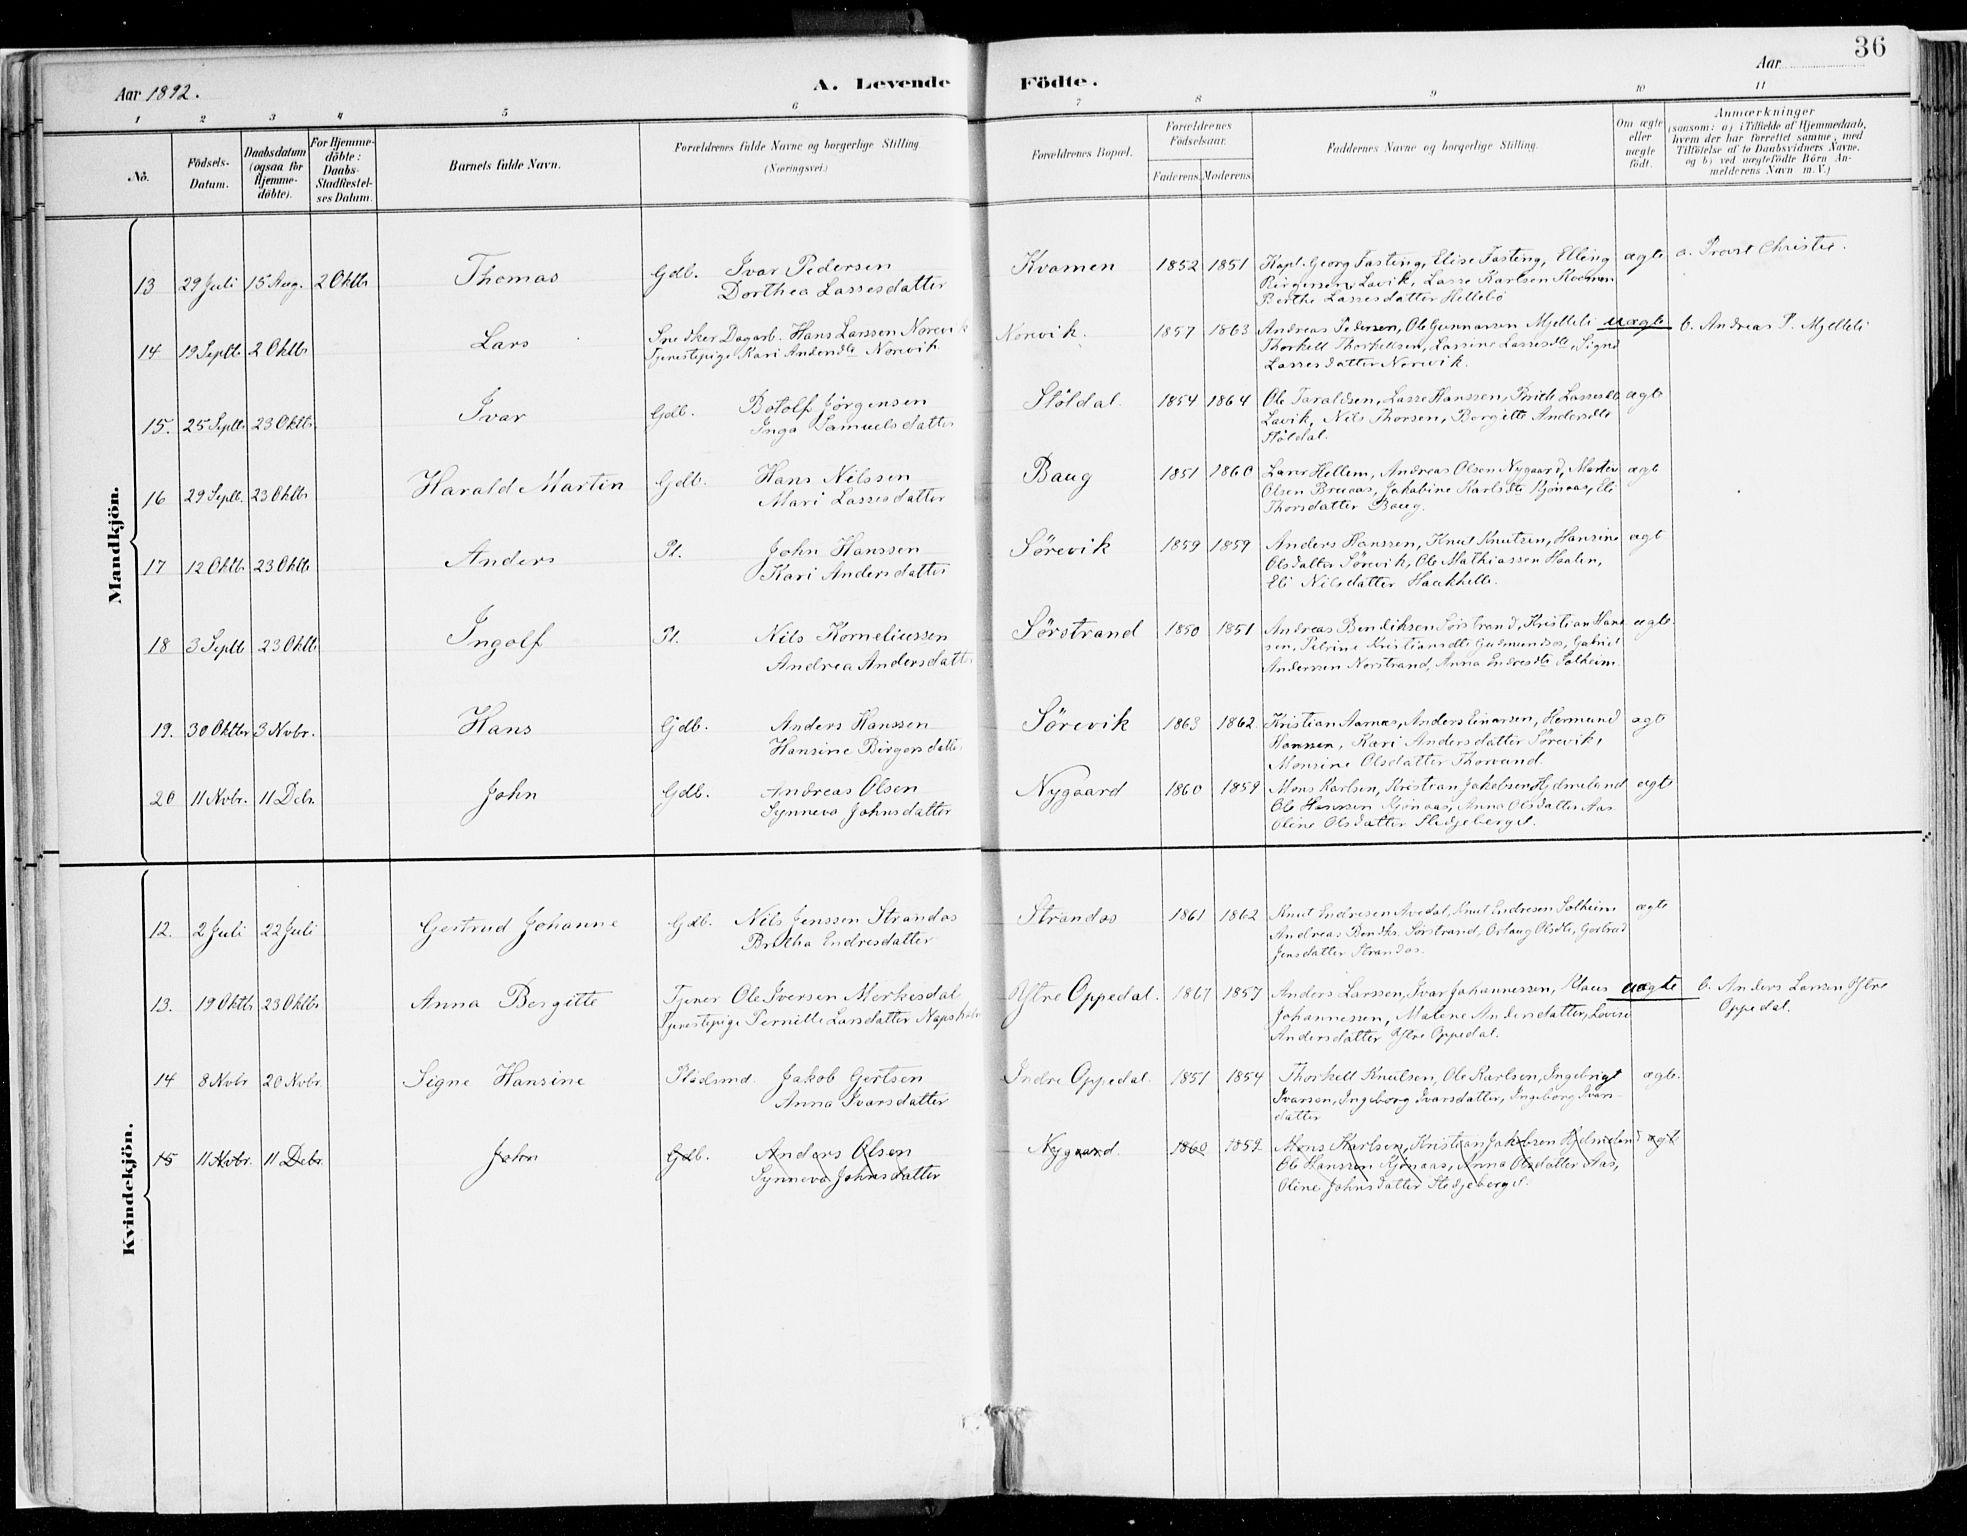 36
Aar 1892.
A. Levende
Födte.
Aar
1 2 3 4 5 6 7 8 9 10 11
Nö.
Födsels-Datum.
Daabsdatum (ogsaa for Hjemme-döbte).
For Hjemme-döbte: Daabs-Stadfæstel-ses Datum.
Barnets fulde Navn.
Forældrenes fulde Navne og borgerlige Stilling (Næringsvei.)
Forældrenes Bopæl.
Forældrenes Födselsaar.
Faderens. Moderens.
Faddernes Navne og borgerlige Stilling.
Om ægte eller uægte födt.
Anmærkninger
(saasom: a) i Tilfælde af Hjemmedaab,
hvem der har forrettet samme, med
Tilföielse af to Daabsvidners Navne,
og b) ved uægtefödte Börn An-
melderens Navn m. V.)
Mandkjön.
13 29 Juli 15 Aug. 2 Oktb Thomas Gdb. Ivar Pedersen Kvamen 1852 1851 Kapt. Georg Fasting, Elise Fasting, Elling ægte a. Provst Christie.
Dorthea Lassesdatter Birgersen Lavik, Lasse Karlsen Kvamen
Berthe Lassesdatter Hellebö
14 19 Septb 2 Oktb Lars Snedker Dagarb. Hans Larssen Norevik Norevik. 1857 1863 Andreas Pedersen, Ole Gunnarsen Mjelleli uægte b. Andreas P. Mjelleli
Tjenestepige Kari Andersdtr Norevik Thorkell Thorkellsen, Lassine Lassesdtr, Signe
Lassesdatter Norevik.
15. 25 Septb 23 Oktb Ivar Gdb. Botolf Jörgensen Stöldal. 1854 1864 Ole Taraldsen, Lasse Hanssen, Brite Lassesdtr ægte
Inga Samuelsdatter Lavik, Nils Thorsen, Borgitte Andersdtr
Stöldal.
16 29 Septb. 23 Oktb Harald Martin Gdb. Hans Nilssen Baug 1851 1860 Hellem, Andreas Olsen Nygaard, Martin ægte
Mari Lassesdatter Olsen Bruaas, Jakobine Karlsdtr Kjönaas, Eli
Thorsdatter Baug.
17 12 Oktb 23 Oktb Anders Pl. John Hanssen Sörevik 1859 1859 Anders Hanssen, Knut Knutsen, Hansine ægte
Kari Andersdatter Olsdatter Sörevik, Ole Mathiassen Haalen,
Eli Nilsdatter
18 3 Septb 23 Oktb Ingolf Pl. Nils Korneliussen Sörstrand 1850 1851 Andreas Bendiksen Sörstrand, Kristian Hans ægte
Andrea Andersdatter sen, Petrine Kristiansdtr Gudmundsös, Gabriel
Andersen Norstrand, Anna Endresdtr Solheim
19. 30 Oktbr 3 Nvbr. Hans Gdb. Anders Hanssen Sörevik 1863 1862 Kristian Aarnæs, Anders Einarsen, Hermund ægte
Hansine Birgersdatter Hanssen, Kari Andersdatter Sörevik,
Monsine Olsdatter Thorvund.
20 11 Nvbr. 11 Debr. John Gdb. Andreas Olsen Nygaard 1860 1859 Mons Karlsen, Kristian Jakobsen Hjelmeland ægte
Synneva Johnsdatter Ole Hanssen Kjönaas, Anna Olsdatter Aas
Oline Olsdatter Stedjeberget.
Kvindekjön.
12. 2 Juli 22 Juli Gertrud Johanne Gdb. Nils Jenssen Strandos Strandos 1861 1862 Knut Endresen Avedal, Knut Endresen Solheim ægte
Brutha Endresdatter Andreas Bendks. Sörstrand, Orlaug Olsdtr, Gertrud
Jensdatter Strandos.
13. 19 Oktb 23 Oktb Anna Borgitte Tjener Ole Iversen Morkesdal Ytre Oppedal. 1867 1857 Anders Larssen, Ivar Johannessen, Klaus uægte b. Anders Larssen Ytre
Tjenestepige Pernille Larsdatter Johannessen, Malene Andersdatter, Lovise Oppedal.
Andersdatter Ytre Oppedal.
14 8 Nvbr 20 Nvbr Signe Hansine Pladsmd. Jakob Gertsen Indre Oppedal. 1851 1854 Thorkell Knutsen, Ole Karlsen, Ingebrigt ægte.
Anna Ivarsdatter Ivarsen, Ingeborg Ivarsdatter, Ingeborg Ivars-
datter
15 11 Nvbr. 11 Debr. John Gdb. Anders Olsen Nygaard. 1860 1859 Mons Karlsen, Kristian Jakobsen Hjelmeland ægte
Synneva Johnsdatter Ole Hanssen Kjönaas, Anna Olsdatter Aas,
Oline Johnsdatter Stedjeberget.